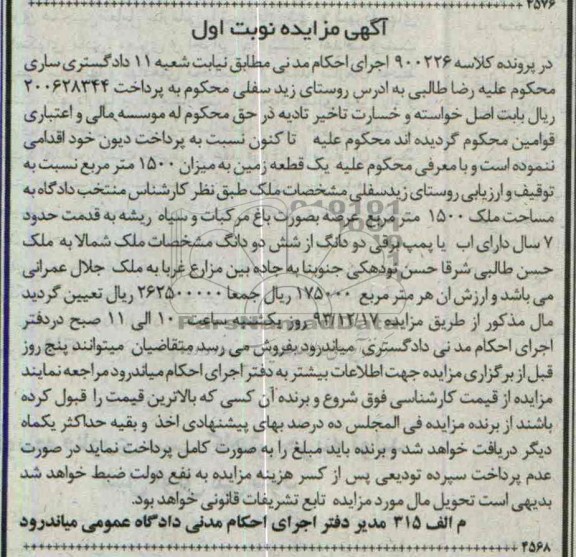 ۲۵۷۶
آگهی مزایده نوبت اول
در پرونده کلاسه ۹۰۰۲۲۶ اجرای احکام مدنی مطابق نیابت شعبه ۱۱ دادگستری ساری
محکوم علیه رضا طالبی به ادرس روستای زید سفلی محکوم به پرداخت ۲۰۰۶۲۸۳۴۴
ریال بابت اصل خواسته و خسارت تاخیر تادیه در حق محکوم له موسسه مالی و اعتباری
قوامین محکوم گردیده اند محکوم علیه تا کنون نسبت به پرداخت دیون خود اقدامی
ننموده است و با معرفی محکوم علیه یک قطعه زمین به میزان ۱۵۰۰ متر مربع نسبت به
توقیف و ارزیابی روستای زیدسفلی مشخصات ملک طبق نظر کارشناس منتخب دادگاه به
مساحت ملک ۱۵۰۰ متر مربع عرصه بصورت باغ مرکبات و سیاه ریشه به قدمت حدود
۷ سال دارای اب با پمپ برقی دو دانگ از شش دو دانگ مشخصات ملک شمالا به ملک
حسن طالبی شرقا حسن نودهکی جنوبنا به جاده بین مزارع غربا به ملک جلال عمرانی
می باشد و ارزش ان هر متر مربع ۱۷۵۰۰۰ ریال جمعا ۲۶۲۵۰۰۰۰۰ ریال تعیین گردید
مال مذکور از طریق مزایده ۹۳/۱۲/۱۷ روز یکشنبه ساعت ۱۰ الی ۱۱ صبح دردفتر
اجرای احکام مدنی دادگستری میاندرود بفروش می رسد متقاضیان میتوانند پنج روز
قبل از برگزاری مزایده جهت اطلاعات بیشتر به دفتر اجرای احکام میاندرود مراجعه نمایند
مزایده از قیمت کارشناسی فوق شروع و برنده آن کسی که بالاترین قیمت را قبول کرده
باشند از برنده مزایده فی المجلس ده درصد بهای پیشنهادی اخذ و بقیه حداکثر یکماه
دیگر دریافت خواهد شد و برنده باید مبلغ را به صورت کامل پرداخت نماید در صورت
عدم پرداخت سپرده تودیعی پس از کسر هزینه مزایده به نفع دولت ضبط خواهد شد
بدیهی است تحویل مال مورد مزایده تابع تشریفات قانونی خواهد بود.
م الف ۳۱۵ مدیر دفتر اجرای احکام مدنی دادگاه عمومی میاندرود
۴۵۶۸